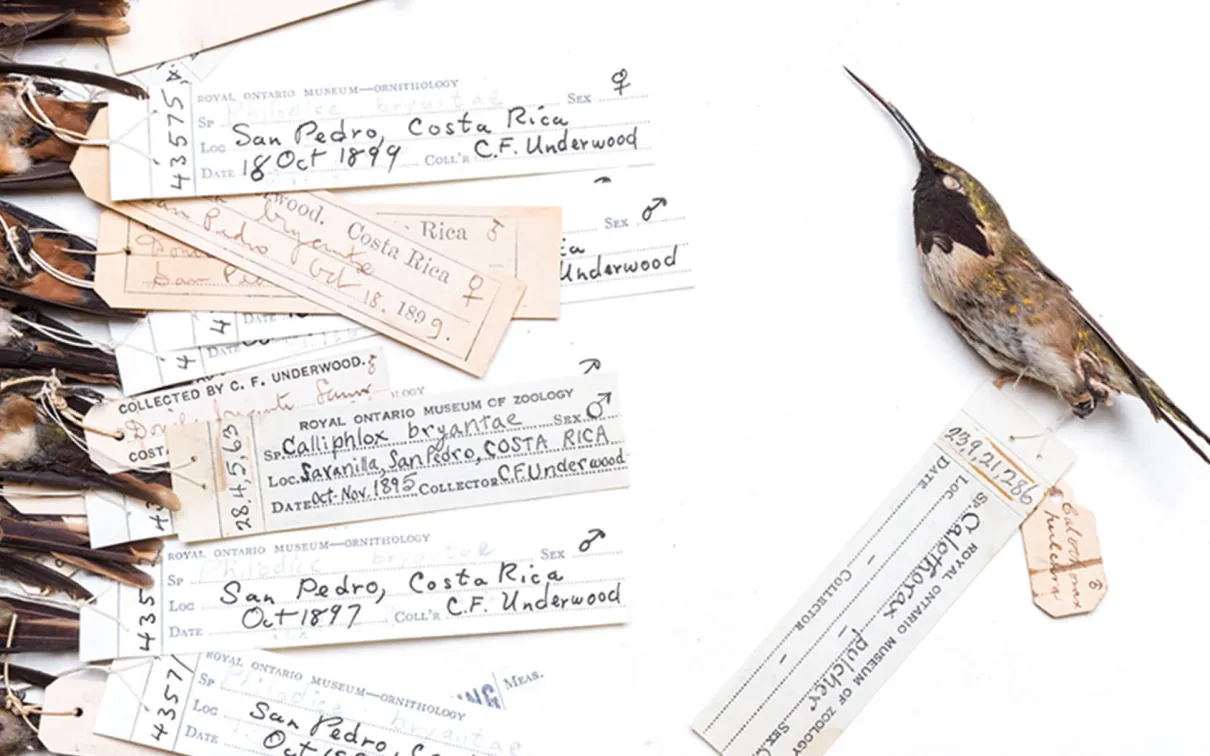 43575
ROYAL ONTARIO MUSEUM—ORNITHOLOGY
SP Philodice bryantae SEX ♀
LOC San Pedro, Costa Rica
DATE 18 Oct 1899 COLL'R C.F. Underwood
SEX ♂
Underwood
rwood. Costa Rica
bryantae ♀
San Pedro Oct 18. 1899.
Rica ♂
San Pe
DATE
DATE
COLLECTED BY C. F. UNDERWOOD. ♂
COSTA
28.4.5.63
ROYAL ONTARIO MUSEUM OF ZOOLOGY
SP. Calliphlox bryantae SEX ♂
LOC. Savanilla, San Pedro, COSTA RICA
DATE Oct-Nov. 1895 COLLECTOR C.F. Underwood
435
ROYAL ONTARIO MUSEUM—ORNITHOLOGY
SP Philodice bryantae SEX ♂
LOC San Pedro, Costa Rica
DATE Oct 1897 COLL'R C.F. Underwood
43571
ROYAL ONTARIO MUSEUM—ORNITHOLOGY
SP Philodice bryantae
LOC San Pedro, Co
DATE Oct 18
MEAS.
239,21,286
ROYAL ONTARIO MUSEUM OF ZOOLOGY
SP. Calothorax pulcher SEX
LOC. - -
DATE - COLLECTOR -
Calothorax
pulchra ♂